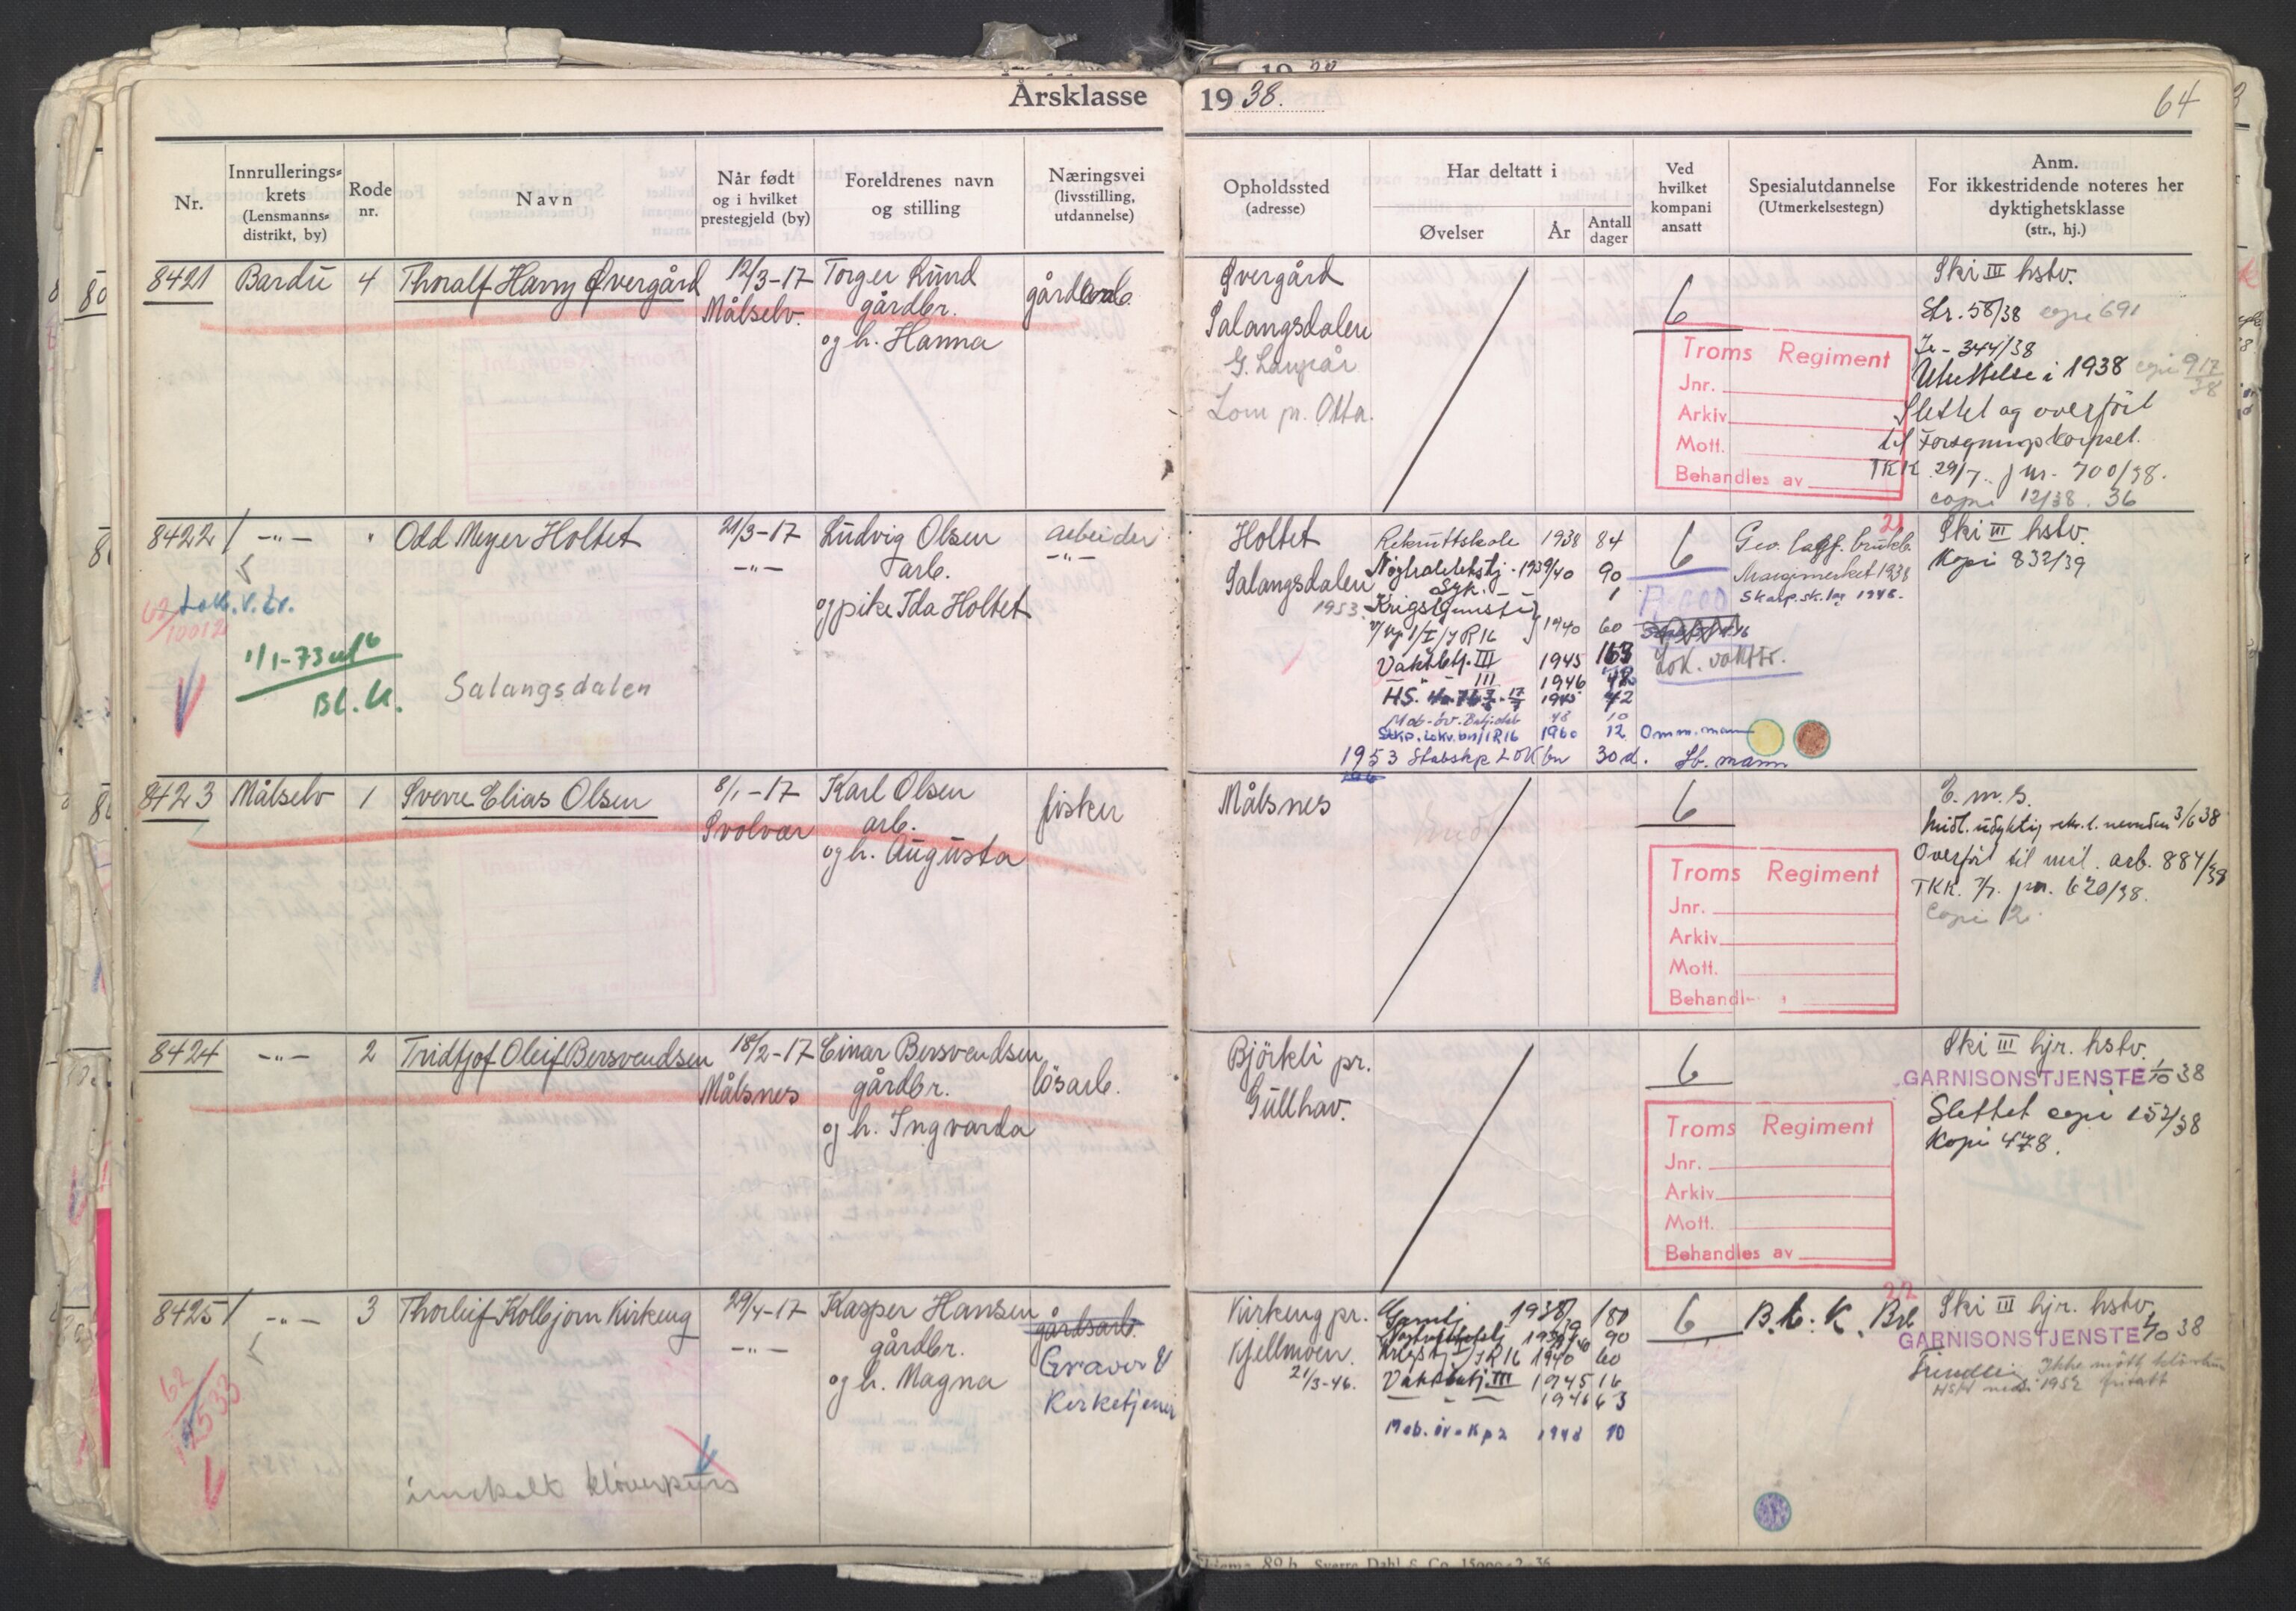 Årsklasse 1938.
64
Nr.
Innrullerings-
krets
(Lensmanns-
distrikt, by)
Rode
nr.
Navn
Når født
og i hvilket
prestegjeld (by)
Foreldrenes navn
og stilling
Næringsvei
(livsstilling,
utdannelse)
Opholdssted
(adresse)
Har deltatt i
Øvelser
År
Antall
dager
Ved
hvilket
kompani
ansatt
Spesialutdannelse
(Utmerkelsestegn)
Anm.
For ikkestridende noteres her
dyktighetsklasse
(str., hj.)
8421 Bardu 4 Thoralf Harry Øvergård
12/3-17
Målselv.
Torger Lund
gårdbr.
og h. Hanna
gårdarb.
Øvergård
Salangsdalen
Lom pr. Otta.
6
Troms Regiment
Jnr.
Arkiv
Mott.
Behandles av
Ski III hstv.
Str. 58/38 copi 691
Utsettelse i 1938 copi 917/38
Slettet og overført
til Forsyningskorpset.
TKK 29/7. jnr. 700/38.
copi 12/38. 36
8422 / -"- " Odd Meyer Holtet
21/3-17
-"-
Ludvig Olsen
arb.
og pike Ida Holtet
arbeider
-"-
62/10012
Lok.v.tr.
1/1-73
Bl. U.
Salangsdalen
Holtet
Salangsdalen
1953
Rekruttskole 1938 84
Nøytralitetstj. 1939/40 90
Syk. 1
Krigstjeneste
v/ kp 1/I/IR16 1940 60
Vaktbtj. III 1945 163
- " - III 1946 48
HS. 1945 42
Mob-øv. 48 10
Stkp. Lokv.bn/IR16 1960 12 Omm.mann
1953 Stabskp LOK bn 30 d. Sb. mann
6
Lok. vakttr.
21
Geo. lagf. brukb.
Marsjmerket 1938
Skarp.sk.lag 1948.
Ski III hstv.
Kopi 832/39
8423 Målselv 1 Sverre Elias Olsen
8/1-17
Svolvær
Karl Olsen
arb.
og h. Augusta
fisker
Målsnes
6
Troms Regiment
Jnr.
Arkiv
Mott.
Behandl
E. m. s.
Midl. udyktig 3/6 38
Overført til mil. arb. 884/38
TKK. 7/7. jnr. 620/38.
Copi 12
8424 -"- 2 Tridtjof Oleif Bersvendsen
18/2-17
Målsnes
Einar Bersvendsen
gårdbr.
og h. Ingvarda
løsarb.
Björkli pr.
Gullhav.
6
Troms Regiment
Jnr.
Arkiv
Mott.
Behandles av
Ski III hjr. hstv.
GARNISONSTJENSTE 1/10 38
Slettet copi 152/38
Kopi 478.
8425 / -"- 3 Thorleif Kolbjørn Kirkeng
29/4-17
-"-
Kasper Hansen
gårdbr.
og h. Magna
gårdsarb.
Graver &
Kirketjener
62/12533
innkalt kløverkurs
Kirkeng pr.
Kjellmoen.
21/3-46.
Garntj. 1938/39 180
Nøytralitetstj 1939/40 90
Krigstj. I/IR16 1940 60
Vaktbatj. III 1945 16
- " - 1946 63
Mob.øv.Kp2 1948 10
6
22
B.t.K. Brb
Ski III hjr. hstv.
GARNISONSTJENSTE 1/10 38
Ikke møtt
1952 fritatt
Sverre Dahl & Co. 15000-2-36